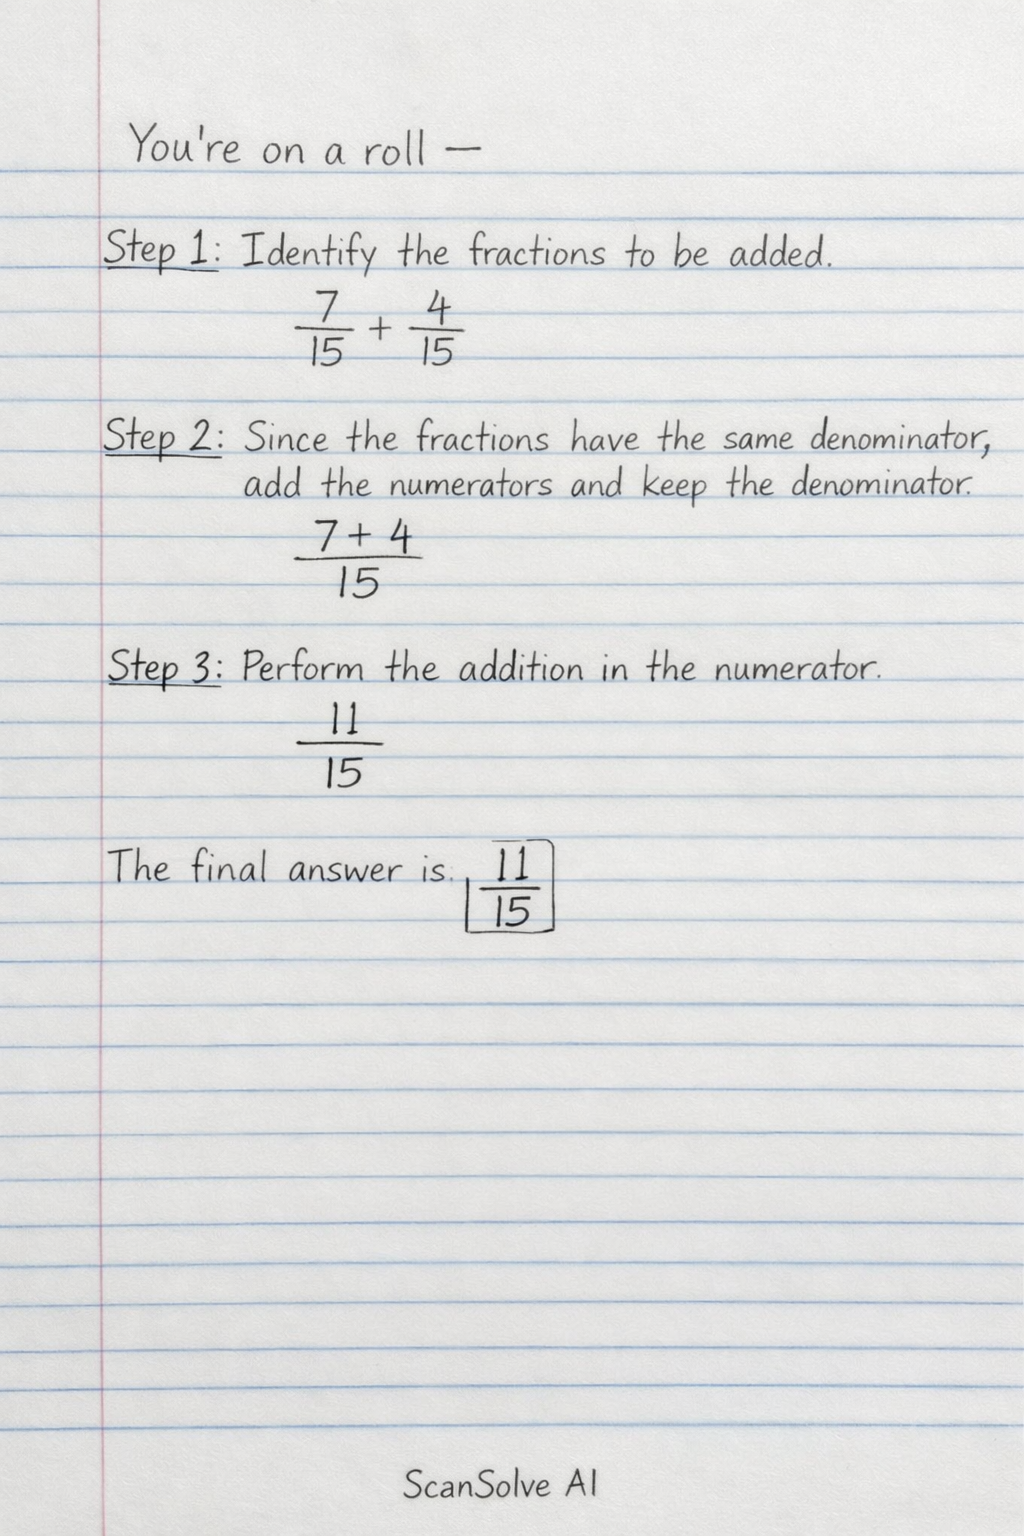 You're on a roll —
Step 1: Identify the fractions to be added.
7/15 + 4/15
Step 2: Since the fractions have the same denominator,
add the numerators and keep the denominator.
7 + 4/15
Step 3: Perform the addition in the numerator.
11/15
The final answer is. 11/15
ScanSolve AI